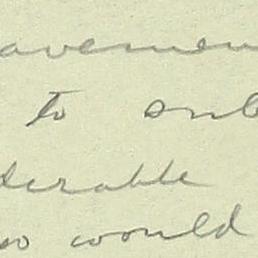 avemen
to sub
derable
so would